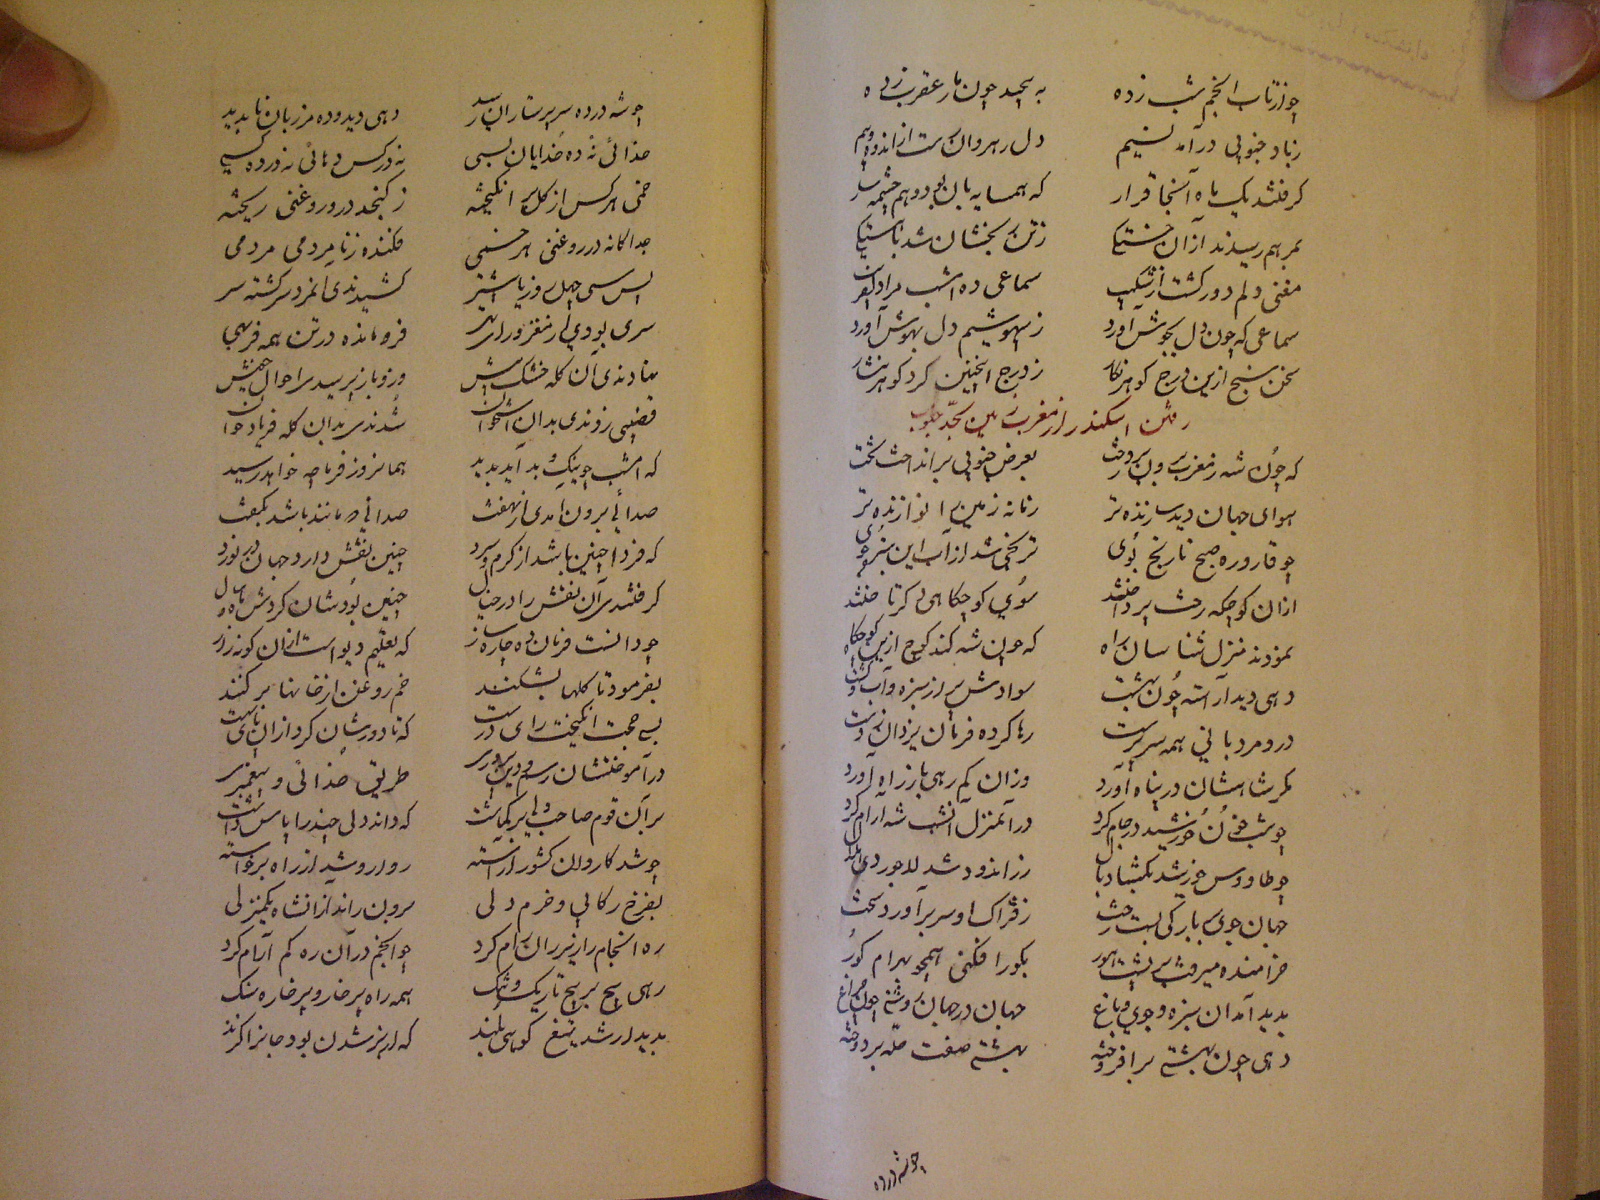 چو از تاب انجم شب زده به پیچید چون مار عقرب زده
ز باد جنوبی درآمد نسیم دل رهروان رست از اندوه و بیم
گرفتند یک ماه آنجا قرار که همسایه بان بود و هم چشمه سار
ز تن رنجشان شد
مغنی دلم دور گشت از شکیب سماعی ده امشب مرا دلفریب
سماعی که چون دل بجوش آورد ز بیهوشیم دل بهوش آورد
سخن سنج ازین درج گوهر نگار ز درج اینچنین کرد گوهر نثار
رفتن اسکندر از مغرب زمین بحد جنوب
که چون شه ز مغرب برون برد رخت بعرض جنوبی برانداخت تخت
هوای جهان دید سازنده تر زمانه زمین را نوازنده تر
چو قاروره صبح نارنج بوی ترنجی شد از آب این سبز جوی
ازان کوچگه رخت پرداختند سوی کوچگاهی دگر تاختند
نمودند منزل شناسان راه که چون شه کند کوچ ازین کوچگاه
دهی دید آراسته چون بهشت سوادش پر از سبزه و آب و کشت
درو مردمانی همه سرپرست رها کرده فرمان یزدان ز دست
مگر شاهشان در پناه آورد وزان گمرهی باز راه آورد
چو شب خون خورشید در جام کرد در آن منزل آنشب شه آرام کرد
چو طاووس خورشید بگشاد بال زراندود شد لاجوردی هلال
جهانجوی بر بارگی بست رخت ز فتراک او سر برآورد بخت
خرامنده میرفت بر پشت بور بگور افکنی همچو بهرام گور
پدید آمد آن سبزه و جوی و باغ جهان در جهان روشنی چون چراغ
دهی چون بهشتی برافروخته بهشتی صفت حله بردوخته
چو شه در ده
چو شه در ده سرپرستان رسید دهی دید و ده مرزبان ناپدید
خدائی نه و ده خدایان بسی نه در کس دهائی نه در ده کسی
خمی هر کس از گل برانگیخته ز کنجد درو روغنی ریخته
جداگانه در روغن هر خمی فکنده ز نامردمی مردمی
پس سی چهل روز یا بیشتر کشیدندی آنمرد سرگشته سر
سری بودی از مغز و از پی تهی فرو مانده در تن همه فربهی
نهادندی آن کله خشک پیش وزو باز پرسیدی احوال خویش
قضیبی زدندی بدان استخوان شدندی بدان کله فریاد خوان
که امشب چه نیک و بد آید پدید همان روز فردا چه خواهد رسید
صدائی برون آمدی از نهفت صدائی که مانند باشد بگفت
که فردا چنین باشد از گرم و سرد چنین نقش دارد جهان در نورد
گرفتندی آن نقش را در خیال چنین بودشان گردش ماه و سال
چو دانست فرمان ده چاره ساز که تعلیم دیو است ازان گونه راز
بفرمود تا کلها بشکنند خم روغن از خانها برکنند
بسی حجت انگیخت رای درست که تا دورشان کرد ازان رای سست
درآموختشان رسم دین پروری طریق خدائی و پیغمبری
بران قوم صاحب دلی برگماشت که داند دلی چند را پاس داشت
چو شد کار وان کشور آراسته روارو شد از راه برخواسته
بفرخ رکابی و خرم دلی برون راند از آنشاه یکمنزلی
ره انجام را زیر ران رام کرد چو انجم در آن ره کم آرام کرد
رهی پیچ بر پیچ تاریک و تنگ همه راه پر خار و پر خاره سنگ
پدیدار شد تیغ کوهی بلند که از برشدن بود جانرا گزند